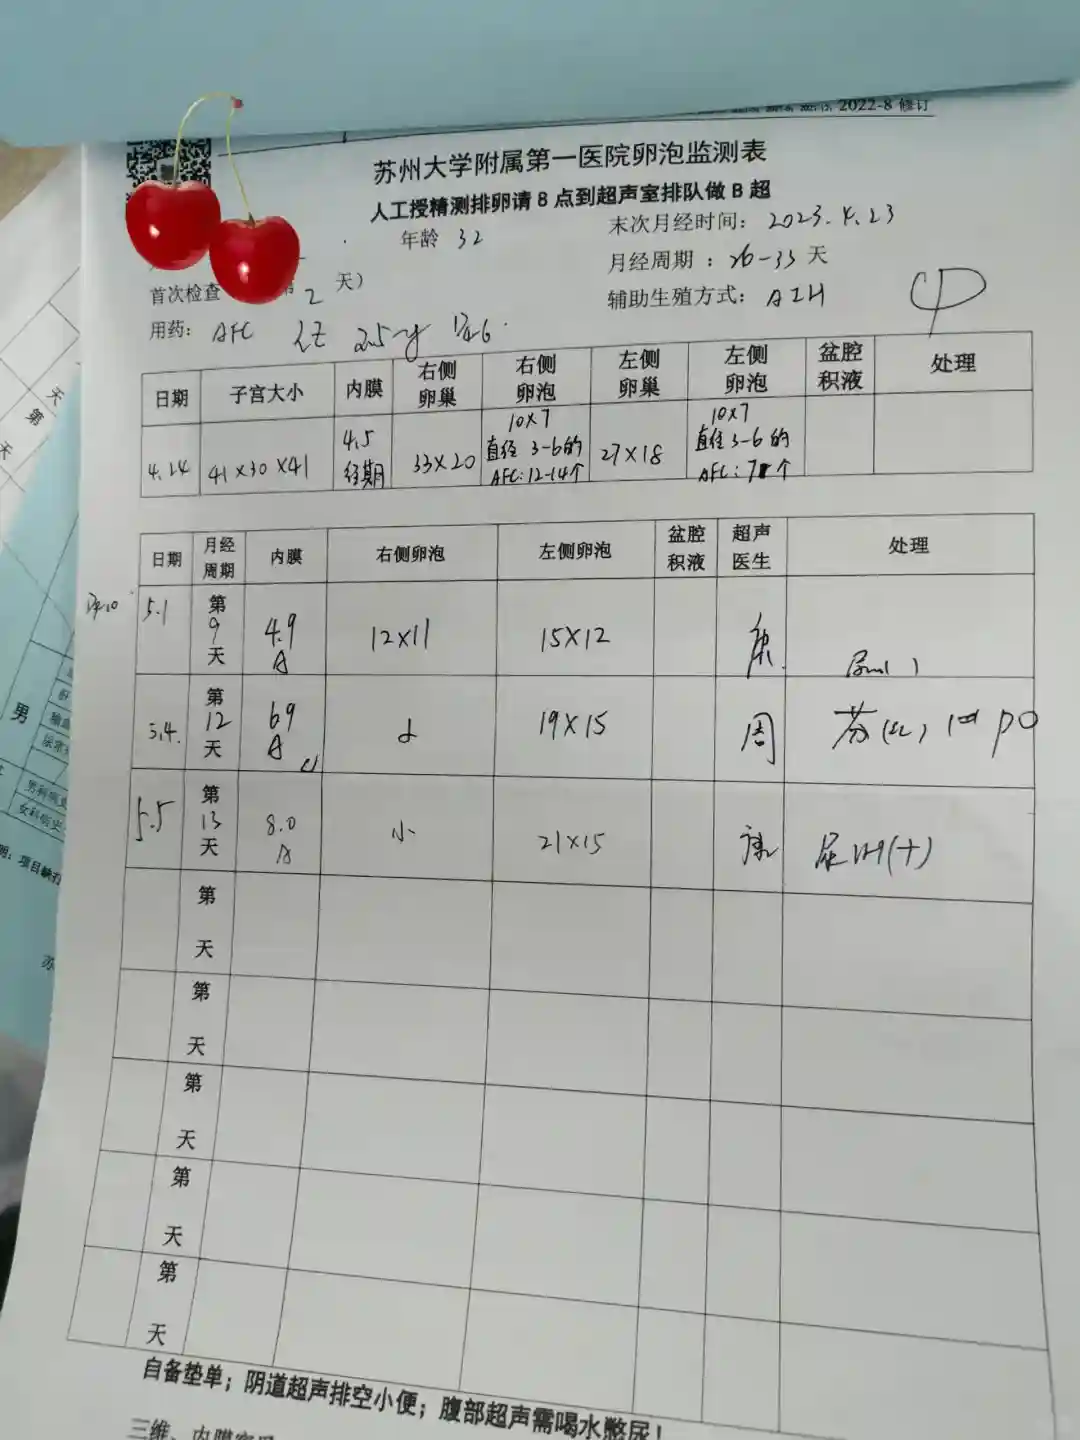 2022-8 修订
苏州大学附属第一医院卵泡监测表
人工授精测排卵请 8 点到超声室排队做 B 超
年龄 32 末次月经时间: 2023.4.23
月经周期 : 26-33 天
首次检查 第 2 天) 辅助生殖方式: AIH
用药: AFC LZ 2.5mg
日期 子宫大小 内膜 右侧卵巢 右侧卵泡 左侧卵巢 左侧卵泡 盆腔积液 处理
4.24 41×30×41 4.5 经期 33×20 10×7 直径 3-6的 AFC:12-14个 27×18 10×7 直径3-6的 AFC:7个
日期 月经周期 内膜 右侧卵泡 左侧卵泡 盆腔积液 超声医生 处理
5.1 第9天 4.9 A 12×11 15×12 康
5.4. 第12天 6.9 A 小 19×15 周
5.5 第13天 8.0 A 小 21×15 康 尿LH(+)
第 天
第 天
第 天
第 天
第 天
自备垫单；阴道超声排空小便；腹部超声需喝水憋尿！
天
第
天
男
男科病史
女科病史
明：项目缺
苏